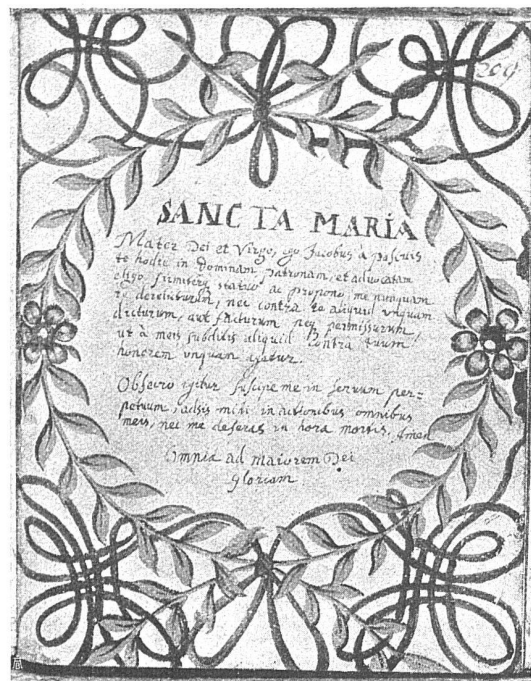 209
SANCTA MARIA
Mater Dei et Virgo, ego Jacobus à pascuis
te hodie in Dominam, patronam, et advocatam
eligo firmiterq statuo ac propono, me nunquam
te derelicturum, nec contra te aliquid unquam
dicturum, aut facturum neq permissurum,
ut à meis subditis aliquid contra tuum
honorem unquam agatur.
Obsecro igitur suscipe me in servum per=
petuum, adsis mihi in actionibus omnibus
meis, nec me deseras in hora mortis, Amen
Omnia ad maiorem Dei
gloriam